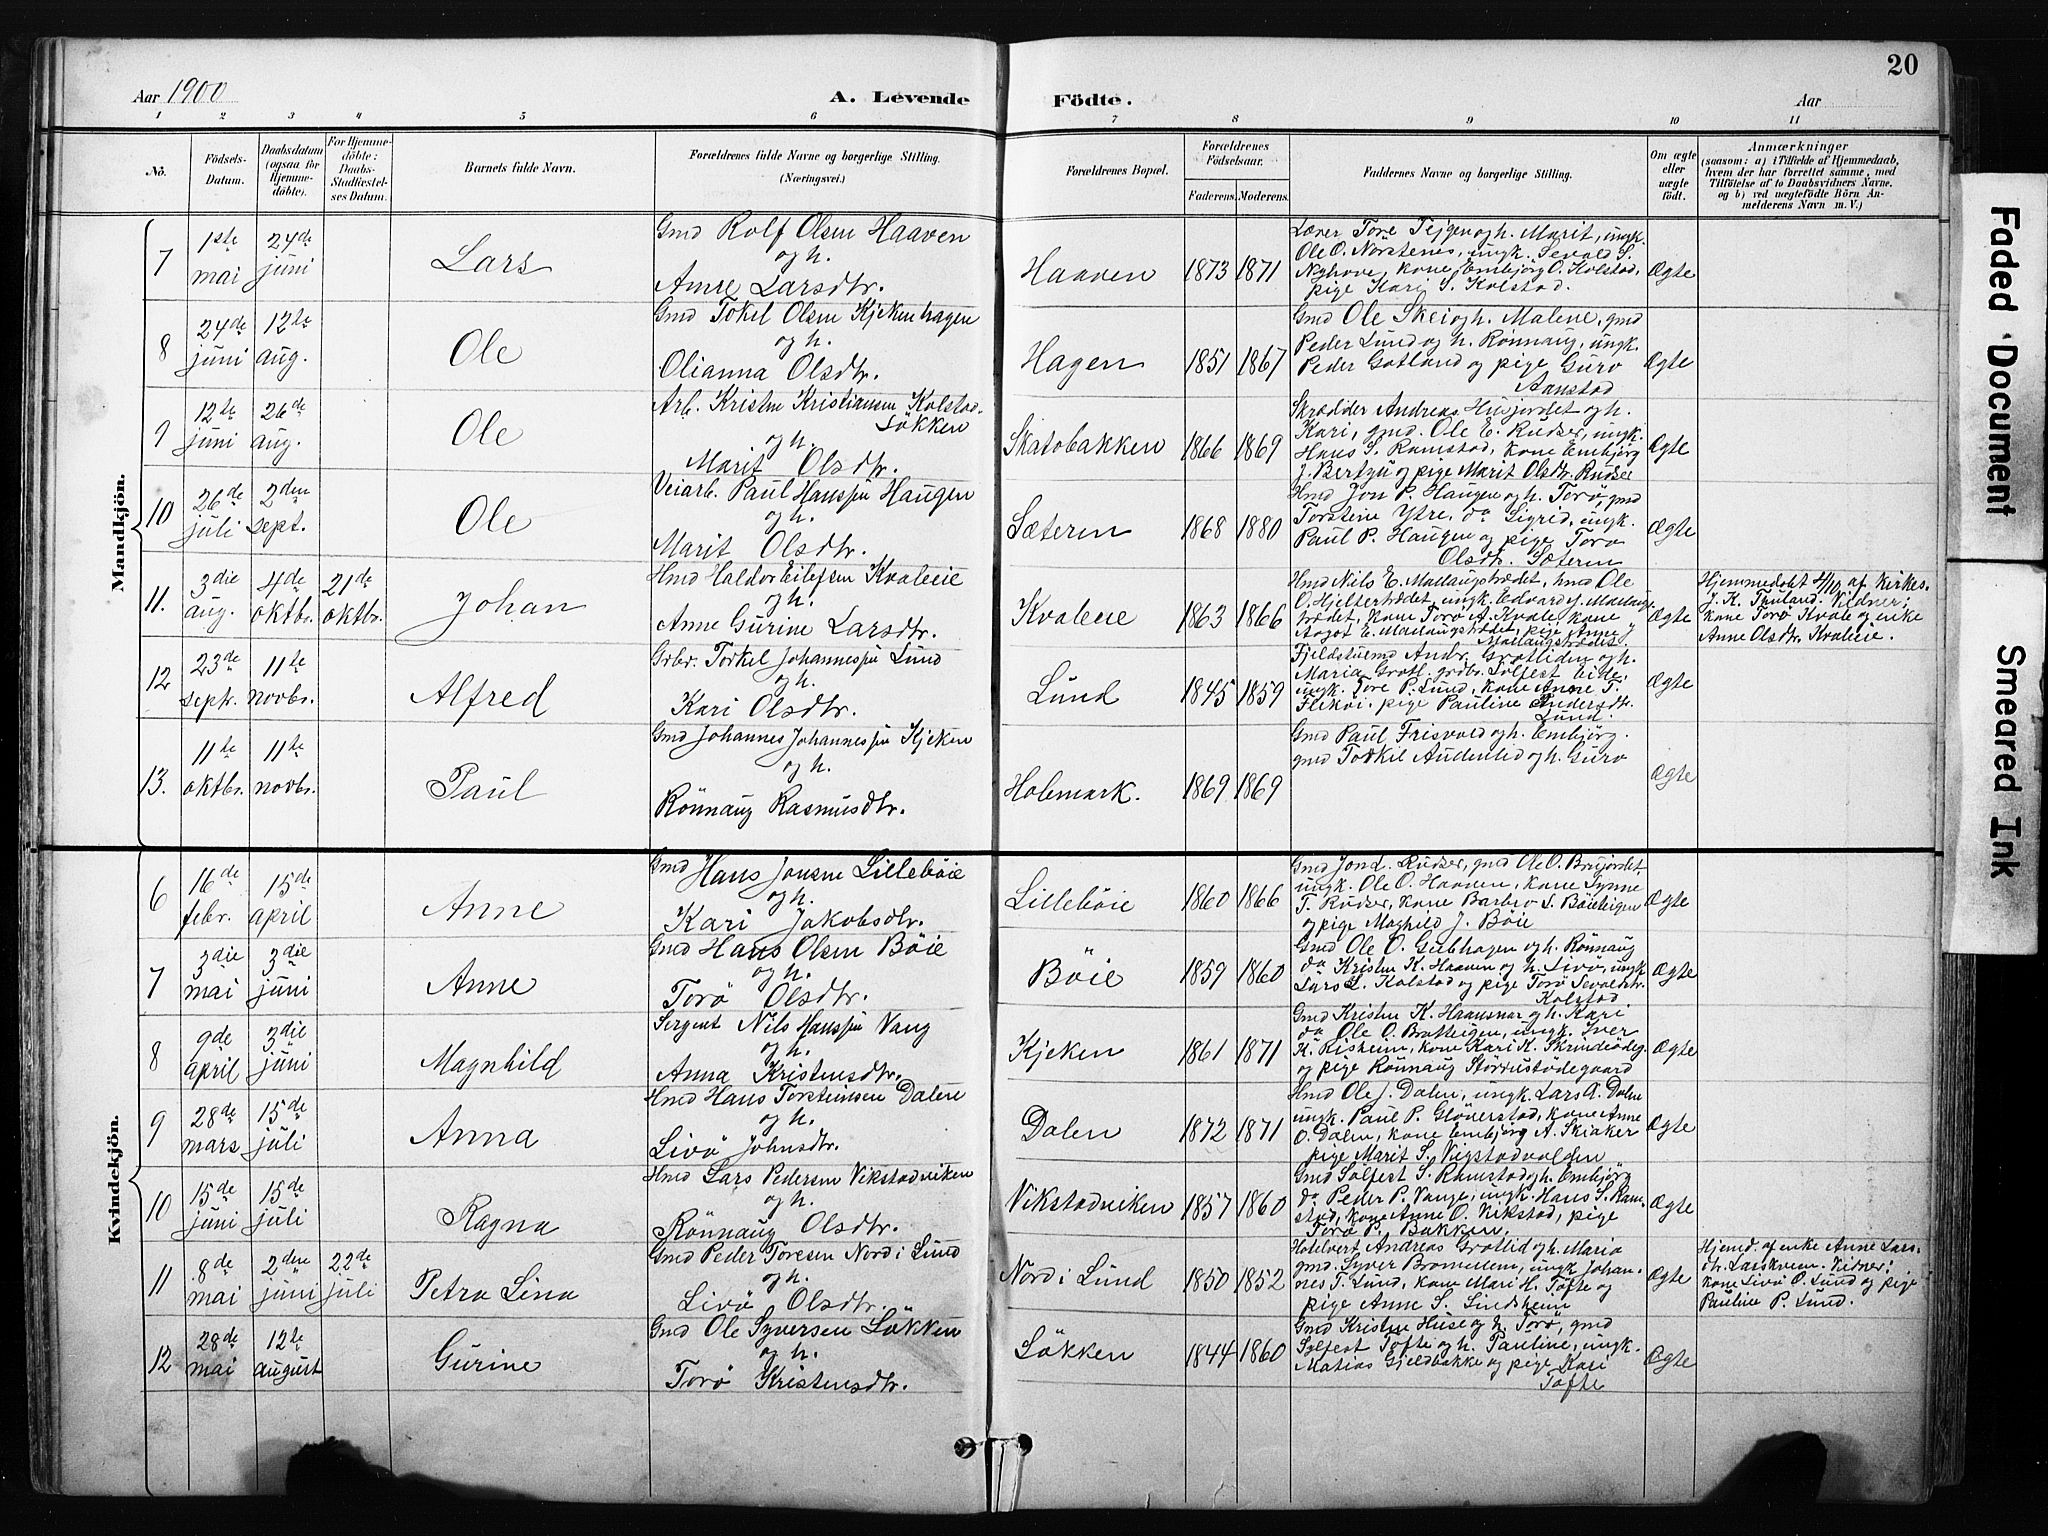 20
Aar 1900
A. Levende Födte.
Aar
1 2 3 4 5 6 7 8 9 10 11
No.
Födsels-Datum.
Daabsdatum (ogsaa for Hjemmedöbte).
For Hjemmedöbte: Daabs-Stadfæstelses Datum.
Barnets fulde Navn.
Forældrenes fulde Navne og borgerlige Stilling. (Næringsvei.)
Forældrenes Bopæl.
Forældrenes Födselsaar.
Faderens. Moderens.
Faddernes Navne og borgerlige Stilling.
Om ægte eller uægte födt.
Anmærkninger
(saasom: a) i Tilfælde af Hjemmedaab,
hvem der har forrettet samme, med
Tilföielse af to Daabsvidners Navne,
og b) ved uægtefödte Börn An-
melderens Navn m. V.)
Mandkjön.
7 1ste mai 24de juni Lars
Gmd Rolf Olsen Haaven
og h.
Anne Larsdtr.
Haaven 1873 1871
Ole O. Norstenes, ungk. Sevald S.
Nyhove, kone Embjörg O. Kolstad,
pige Kari S. Kolstad.
Ægte
8 24de juni 12te aug. Ole
Gmd Tokel Olsen Kjekenhagen
og h.
Olianna Olsdtr.
Hagen 1851 1867
Gmd Ole Skei og h. Malene, gmd
Peder Lund og h. Rönnaug, ungk.
Peder Gotland og pige Guro
Aanstad
Ægte
9 12te juni 26de aug. Ole
Arb. Kristen Kristiansen Kolstad-
lökken
og h.
Marit Olsdtr.
Skatobakken 1866 1869
Skrædder Andreas Husjordet og h.
Kari, gmd. Ole E. Rudser, ungk.
Hans S. Ramstad, kone Embjörg
og pige Marit Olsdtr. Rudse
Ægte
10 26de juli 2den sept. Ole
Veiarb. Paul Hanssen Haugen
og h.
Marit Olsdtr.
Sæteren 1868 1880
Hmd Jon P. Haugen og h. Torö, gmd
Torsteine Ytre, do Sigrid, ungk.
Paul P. Haugen og pige Torö
Olsdtr. Sæteren
Ægte
11. 3die aug. 4de oktbr. 21de oktbr. Johan
Hmd Haldor Eilefsen Kvaleeie
og h.
Anne Gurine Larsdtr.
Kvaleeie 1863 1866
Hmd Nils E. Mallaugstrædet, hmd Ole
O. Hjeltertrædet, ungk. Edvard J. Mallaugs-
trædet, kone Torö A. Kvale, kone
Aagot E. Mallaugstrædet, pige Anne J
Mallaugstrædet.
Ægte
Hjemmedöbt 4/10 af Kirkes.
J. K. Vidner:
kone Torö Kvale og enke
Anne Olsdtr. Kvaleeie.
12 23de septr. 11te novbr. Alfred
Grbr. Torkel Johannessen Lund
og h.
Kari Olsdtr.
Lund 1845 1859
Fjeldstuemd Andr. Grotliden og h.
Maria Grotl. grdbr. Sölfest Eide,
ungk. Tore P. Lund, kone Anne T.
Fleköi. pige Pauline Pedersdtr.
Lund.
Ægte
13. 11te oktbr. 11te novbr. Paul
Gmd Johannes Johannessen Kjeken
og h.
Rönnaug Rasmusdtr.
Holemark. 1869 1869
Gmd Paul Frisvold og h. Embjörg.
gmd Torkil Audenlid og h. Guro
Ægte
Kvindekjön.
6 16de febr. 15de april Anne
Gmd Hans Jonsen Lilleböie
og h.
Kari Jakobsdtr.
Lilleböie 1860 1866
Gmd Jon L. Rudser, gmd Ole O. Brujordet,
ungk. Ole O. Haaven, kone Synne
T. Rudser, kone Barbro S. Böieteigen
og pige Maghild J. Böie
Ægte
7 3die mai 3die juni Anne
Gmd Hans Olsen Böie
og h.
Torö Olsdtr.
Böie 1859 1860
Gmd Ole O. Gubhagen og h. Rönnaug
do Kristen K. Haaven og h. Livö, ungk
Lars L. Kolstad og pige Torö Sevaldstr.
Kolstad
Ægte
8 9de april 3die juni Magnhild
Sergent Nils Hanssen Vang
og h.
Anna Kristensdtr.
Kjeken 1861 1871
Gmd Kristen K. Haansnar og h. Kari
do Ole O. Bratteigen, ungk. Iver
K. Risheim, kone Kari K. Skrindeödeg.
og pige Rönnaug Storrustödegaard
Ægte
9 28de mars 15de juli Anna
Hmd Hans Torsteinsen Dalen
og h.
Livö Johnsdtr.
Dalen 1872 1871
Hmd Ole J. Dalen, ungk. Lars A. Dalen
ungk. Paul P. Glömerstad, kone Anne
O. Dalen, kone Embjörg A. Skiaker
pige Marit S. Vigstadvolden
Ægte
10 15de juni 15de juli Ragna
Hmd Lars Pedersen Vikstadviken
og h.
Rönnaug Olsdtr.
Vikstadviken 1857 1860
Gmd Sölfest S. Ramstad og h. Embjörg
do Peder P. Vange, ungk. Hans S. Ram-
stad, kone Anne O. Vikstad, pige
Torö P. Bakken.
Ægte
11 8de mai 2den juni 22de juli Petra Lina
Gmd Peder Toresen Nord i Lund
og h.
Livö Olsdtr.
Nord i Lund 1850 1852
Hotelvert Andreas Grotlid og h. Maria
gmd. Syver Bromellem, ungk Johan-
nes T. Lund, kone Mari H. Tofte og
pige Anne S. Lindsheim
Ægte
Hjemd. af enke Anne Lars-
dtr. Vidner:
kone Livö O. Lund og pige
Pauline P. Lund.
12 28de mai 12te august Gurine
Gmd Ole Syversen Lökken
og h.
Torö Kristensdtr.
Lökken 1844 1860
Gmd Kristen Huse og h. Torö, gmd
Sölfest Tofte og h. Pauline, ungk.
Matias Gjeldbakke og pige Kari
Tofte
Ægte
Faded Document
Smeared Ink